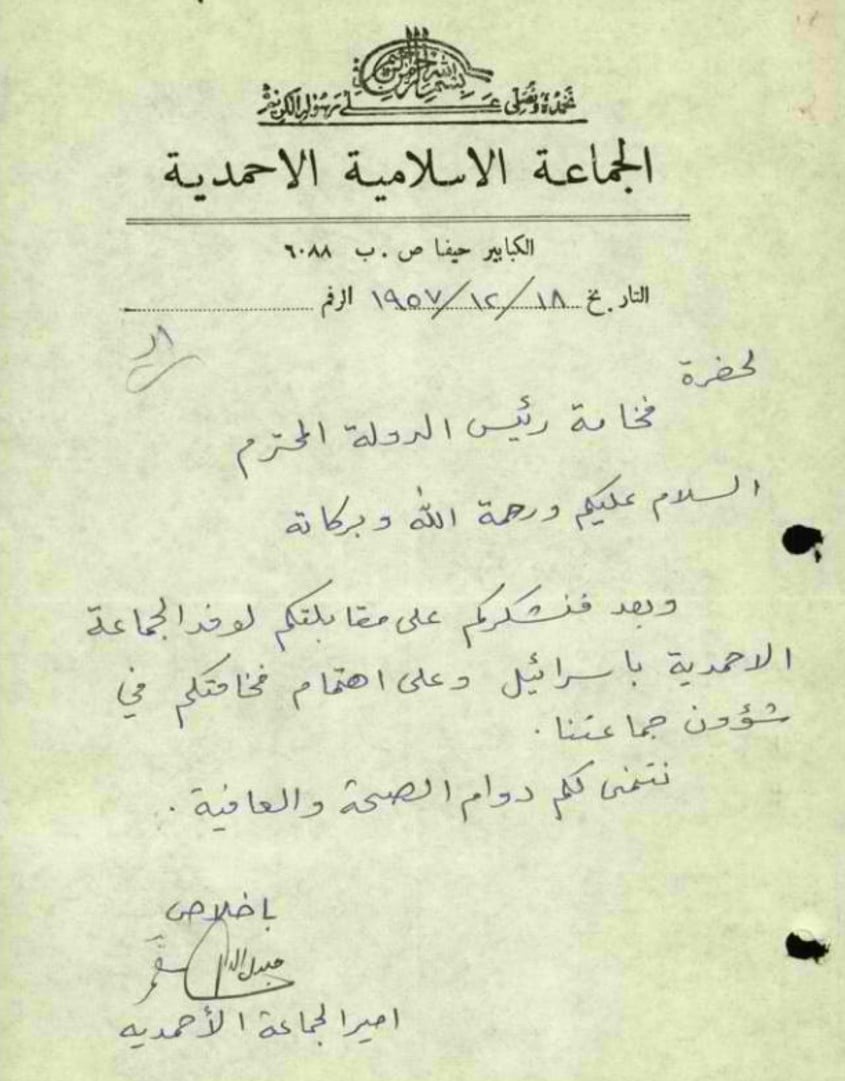 بسم الله الرحمن الرحيم
نحمده ونصلى على رسوله الكريم
الجماعة الاسلامية الاحمدية
الكبابير حيفا ص . ب ٦٠٨٨
التاريخ ١٨/١٢/١٩٥٧ الرقم
لحضرة
فخامة رئيس الدولة المحترم
السلام عليكم ورحمة الله وبركاته
وبعد فنشكركم على مقابلتكم لوفد الجماعة
الاحمدية باسرائيل وعلى اهتمام فخامتكم في
شؤون جماعتنا .
نتمنى لكم دوام الصحة والعافية .
باخلاص
امير الجماعة الأحمديه